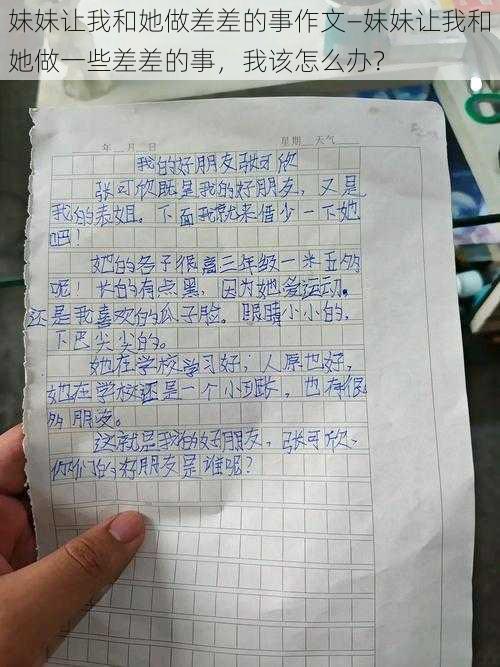 妹妹让我和她做差差的事作文—妹妹让我和
她做一些差差的事，我该怎么办？
年 月 日 星期 天气
我的好朋友张可欣
张可欣既是我的好朋友，又是
我的表姐。下面我就来借少一下她
吧！
她的各子很高三年级一米五多
呢！长的有点黑，因为她爱运动。
还是我喜欢的瓜子脸。眼睛小小的，
下巴尖尖的。
她在学校学习好；人原也好，
她在学校还是一个小班长，也有很
多朋友。
这就是我的好朋友，张可欣、
你们的好朋友是谁呢？